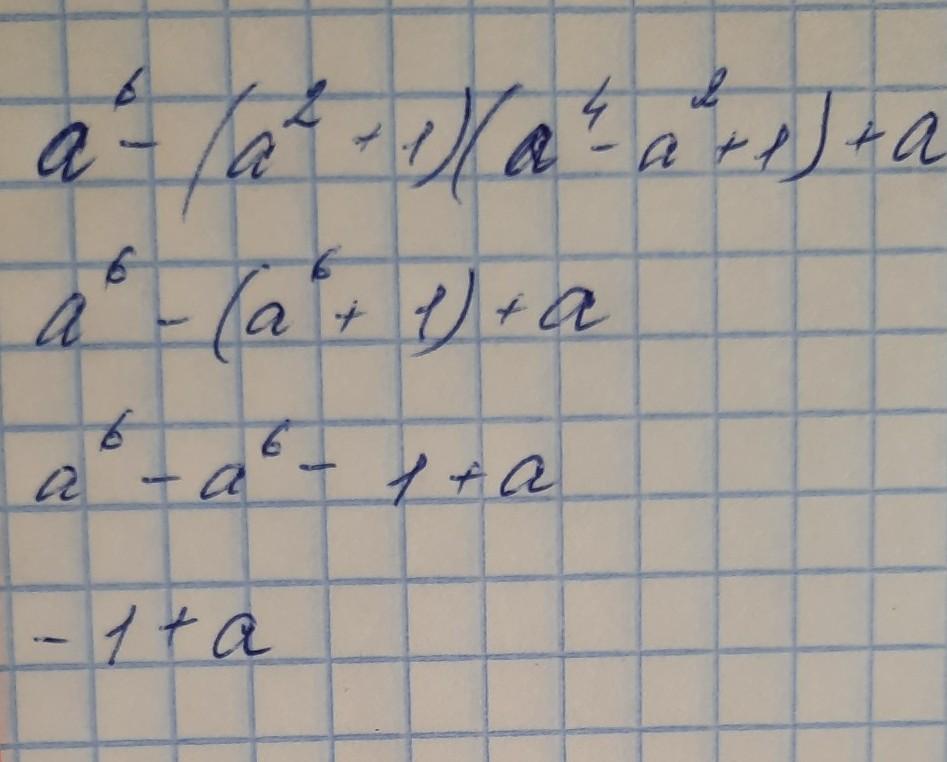 a⁶ - (a² + 1)(a⁴ - a² + 1) + a
a⁶ - (a⁶ + 1) + a
a⁶ - a⁶ - 1 + a
- 1 + a